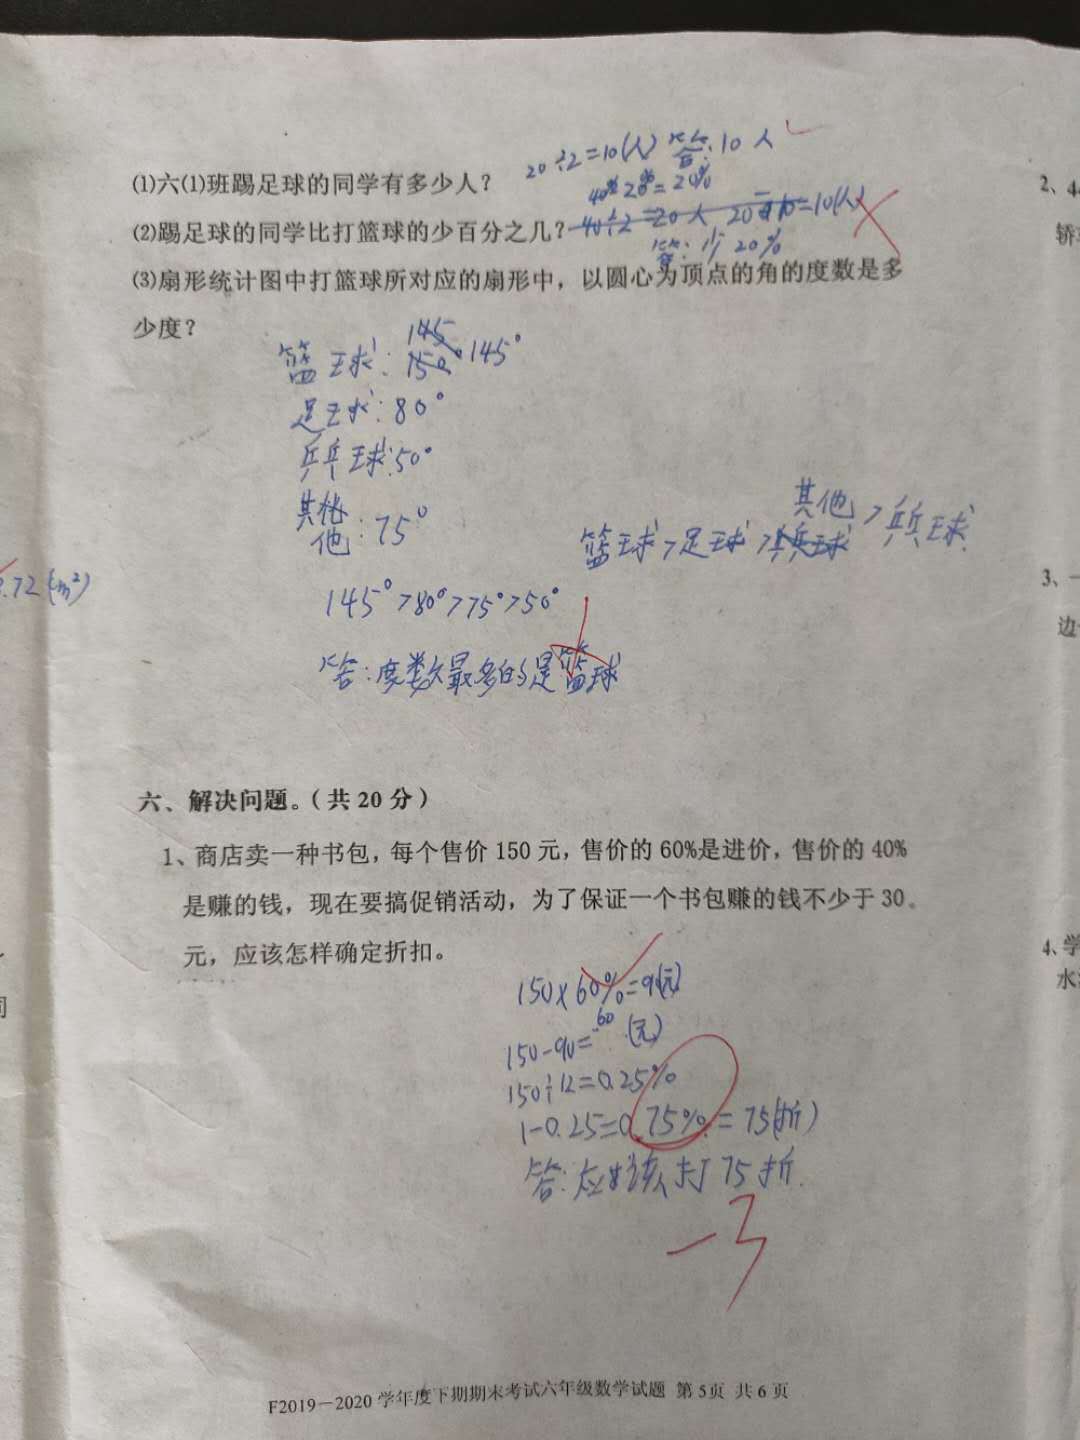 20÷2=10(人) 答:10人
⑴六⑴班踢足球的同学有多少人?
40% 20%=20%
⑵踢足球的同学比打篮球的少百分之几?
40÷2=20人 20 10=10(人)
答:少20%
⑶扇形统计图中打篮球所对应的扇形中，以圆心为顶点的角的度数是多
少度?
145
篮球:150°145°
足球:80°
乒乓球:50°
其他
他:75°
其他>乒乓球
篮球>足球>乒乓球
145°>80°>75°>50°
答:度数最多的是篮球
.72(m²)
六、解决问题。(共20分)
1、商店卖一种书包，每个售价150元，售价的60%是进价，售价的40%
是赚的钱，现在要搞促销活动，为了保证一个书包赚的钱不少于30
元，应该怎样确定折扣。
150×60%=9(元)
150-90=60(元)
150÷12=0.25%
1-0.25=0.75%=75(折)
答:应该打75折.
-3
F2019－2020学年度下期期末考试六年级数学试题 第5页 共6页
2、4
轿
3、一
边
4、学
水